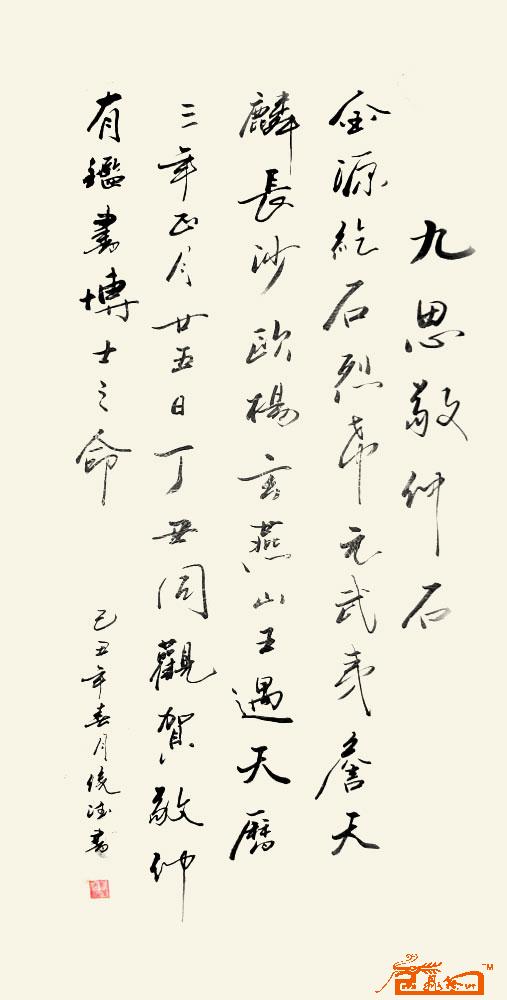 九思敬仲石
金源紇石烈希元武夷詹天
麟長沙歐楊玄燕山王遇天曆
三年正月廿五日丁丑同觀賀敬仲
有鑑書博士之命
己丑年春月
書
TM